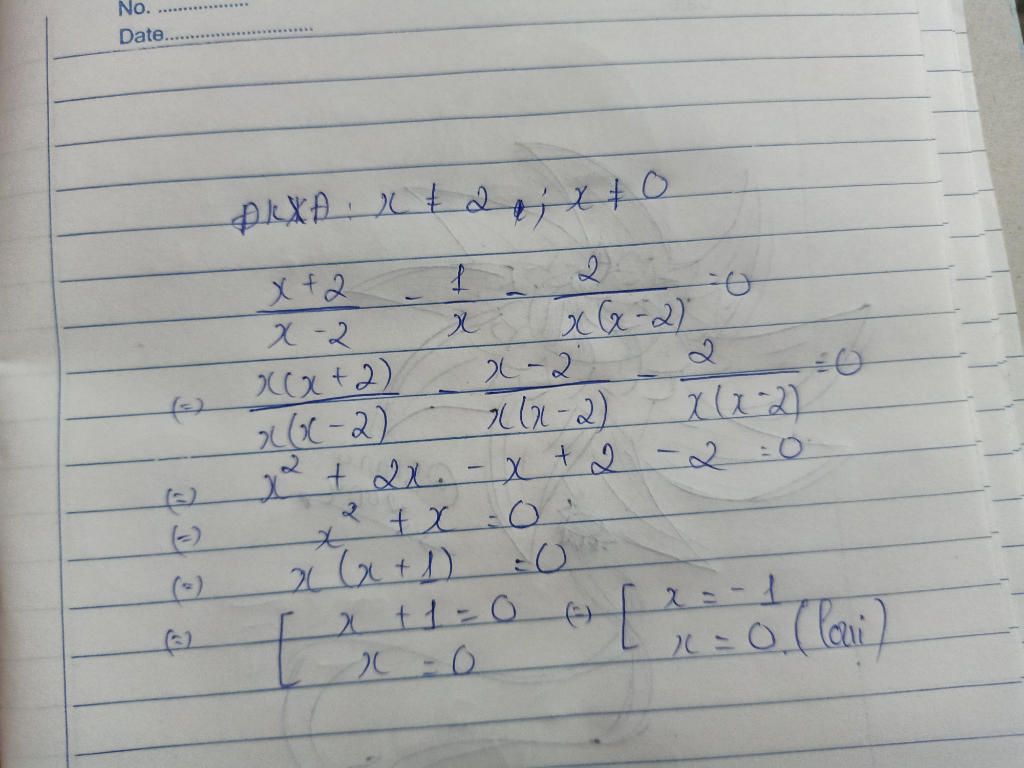 No. ..................
Date...............................
ĐKXĐ : x ≠ 2 ; x ≠ 0
\frac{x+2}{x-2} - \frac{1}{x} - \frac{2}{x(x-2)} = 0
(=) \frac{x(x+2)}{x(x-2)} - \frac{x-2}{x(x-2)} - \frac{2}{x(x-2)} = 0
(=) x² + 2x - x + 2 - 2 = 0
(=) x² + x = 0
(=) x(x+1) = 0
(=) [ x + 1 = 0 (=) [ x = -1
x = 0 x = 0. (loại)